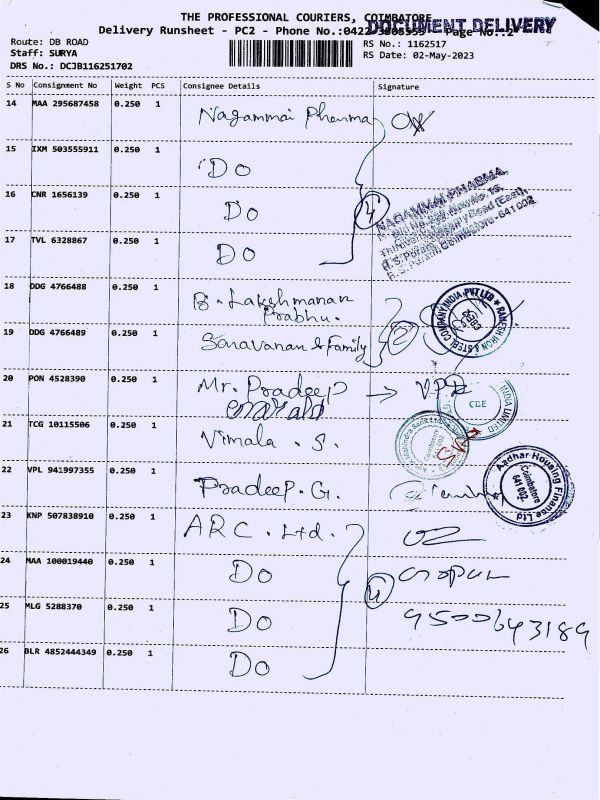 THE PROFESSIONAL COURIERS, COIMBATORE
DOCUMENT DELIVERY
Delivery Runsheet - PC2 - Phone No.:0422 Page No.:2
Route: DB ROAD
RS No.: 1162517
Staff: SURYA
RS Date: 02-May-2023
DRS No.: DCJB116251702
S No Consignment No Weight PCS Consignee Details Signature
14 MAA 295687458 0.250 1 Nagammai Pharma
15 IXM 503555911 0.250 1 Do
16 CNR 1656139 0.250 1 Do
4
NAGAMMAI PHARMA
R.S. Puram, Coimbatore - 641 002
17 TVL 6328867 0.250 1 Do
18 DDG 4766488 0.250 1 B. Lakshmanan
Prabhu.
RAKESH IRON & STEEL COMPANY INDIA PVT LTD
19 DDG 4766489 0.250 1 Saravanan & Family
2
20 PON 4528390 0.250 1 Mr. Pradeep →
emerald
CBE
INDIA LIMITED
21 TCG 10115506 0.250 1 Vimala . S.
Coimbatore
22 VPL 941997355 0.250 1 Pradeep. G.
Aadhar Housing Finance Ltd
Coimbatore
641 002
23 KNP 507838910 0.250 1 ARC. Ltd.
24 MAA 100019440 0.250 1 Do
4
Gopal
25 MLG 5288370 0.250 1 Do
9500643189
26 BLR 4852444349 0.250 1 Do